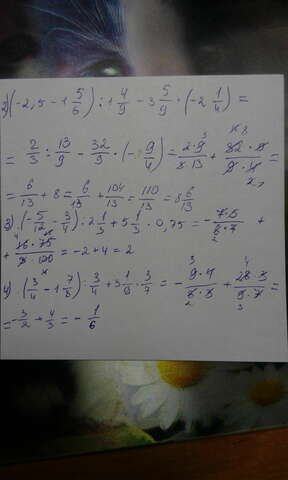 2) (-2,5 - 1 5/6) : 1 4/9 - 3 5/9 · (-2 1/4) =
= 2/3 : 13/9 - 32/9 · (- 9/4) = 2·9/3·13 + 32·9/9·4 =
= 6/13 + 8 = 6/13 + 104/13 = 110/13 = 8 6/13
3) (- 5/12 - 3/4) : 2 1/3 + 5 1/3 · 0,75 = - 7·3/6·7 +
+ 16·75/3·100 = -2+4=2
4) (3/4 - 1 7/8) : 3/4 + 3 1/9 · 3/7 = - 9·4/8·3 + 28·3/9·7 =
= - 3/2 + 4/3 = - 1/6